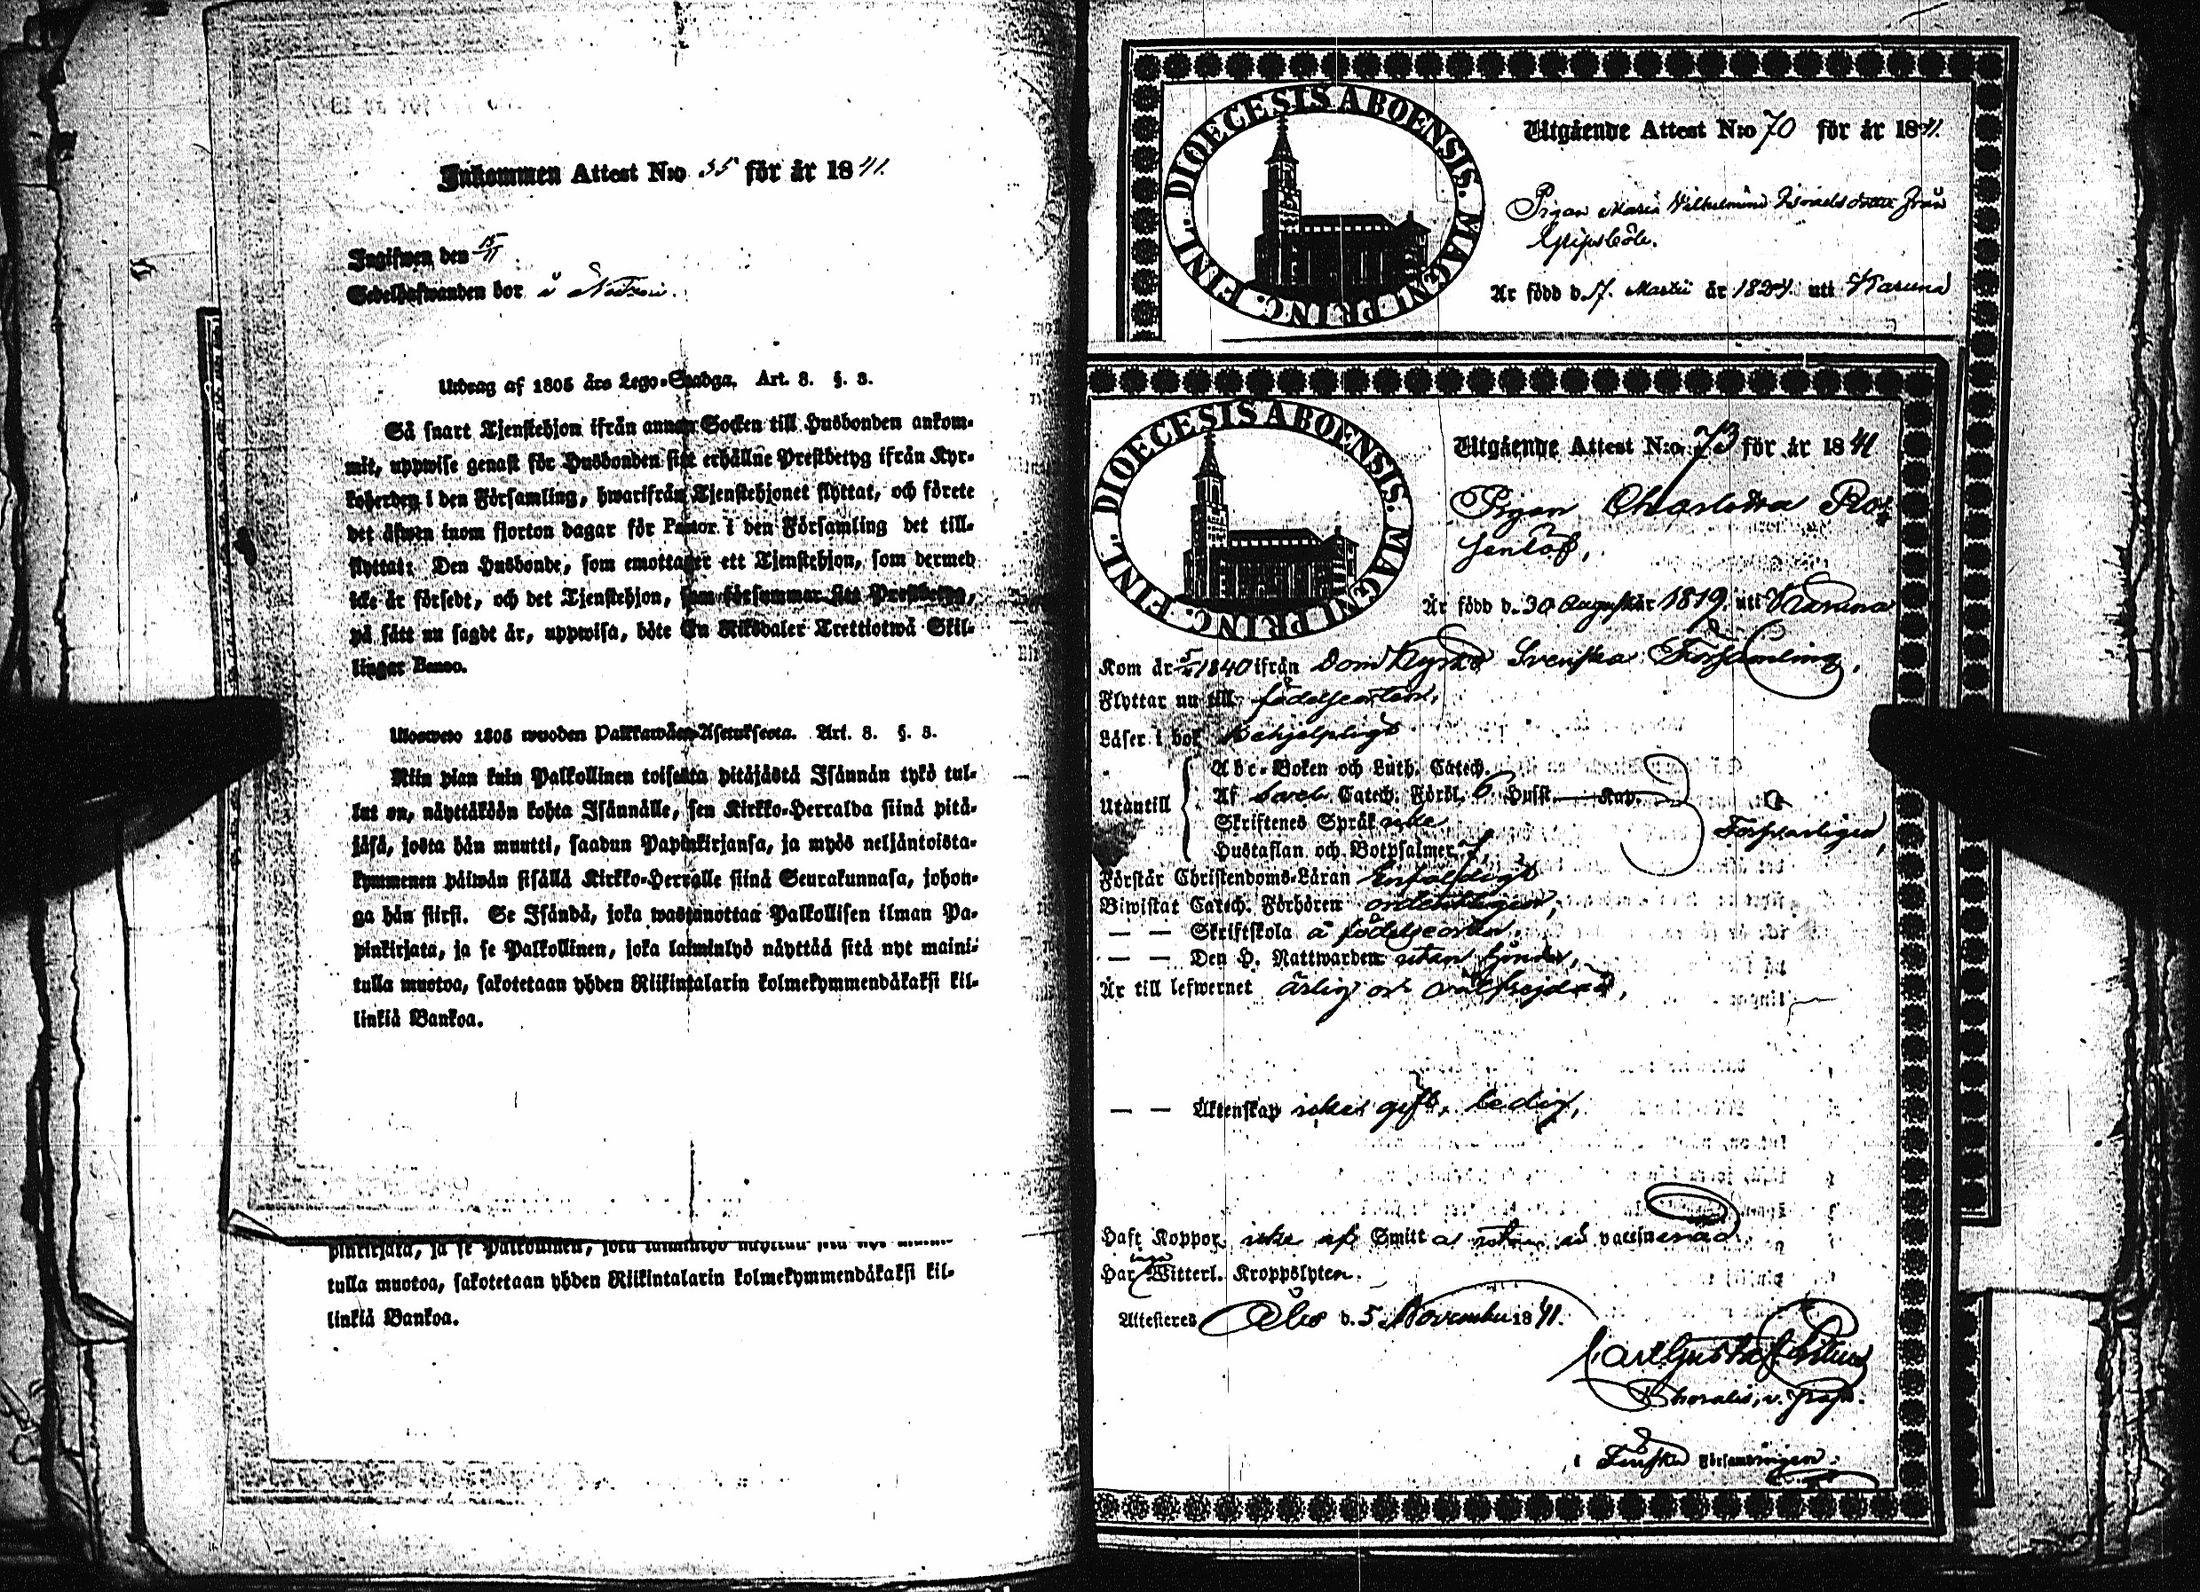 Inkommen Attest N:o 35 för år 1841.
Ingifwen den 15/11
Sedelhafwanden bor å
Utdrag af 1805 års Lego-Stadga. Art. 8. §. 3.
Så snart Tjenstehjon ifrån annan Socken till Husbonden ankom-
mit, uppwise genast för Husbonden sitt erhållne Prestbetyg ifrån Kyr-
koherden i den Församling, hwarifrån Tjenstehjonet flyttat, och förete
det äfwen inom fjorton dagar för Pastor i den Församling det till-
flyttat: Den Husbonde, som emottager ett Tjenstehjon, som dermed
icke är försedt, och det Tjenstehjon, som försummar sitt Prestbetyg,
på sätt nu sagdt är, uppwisa, böte En Riksdaler Trettiotwå Skil-
lingar Banco.
Ulosweto 1805 wuoden Palkkawäen-Asetuksesta. Art. 8. §. 3.
Niin pian kuin Palkollinen toisesta pitäjästä Isännän tykö tul-
lut on, näyttäköön kohta Isännälle, sen Kirkko-Herralda siinä pitä-
jäsä, josta hän muutti, saadun Papinkirjansa, ja myös neljäntoista-
kymmenen päiwän sisällä Kirkko-Herralle siinä Seurakunnasa, johon-
ga hän siirsi. Se Isändä, joka wastanottaa Palkollisen ilman Pa-
pinkirjata, ja se Palkollinen, joka laiminlyö näyttää sitä nyt maini-
tulla muotoa, sakotetaan yhden Riikintalarin kolmekymmendäkaksi kil-
linkiä Bankoa.
pinkirjata, ja se Palkollinen, joka laiminlyö näyttää sitä nyt maini-
tulla muotoa, sakotetaan yhden Riikintalarin kolmekymmendäkaksi kil-
linkiä Bankoa.
DIOECESIS ABOENSIS. MAGNI PRINC. FINL.
Utgående Attest N:o 70 för år 1841.
Pigan Maria Vilhelmina Israelsdotter från
Är född d. 17. Martii år 1824. uti Karuna
DIOECESIS ABOENSIS. MAGNI PRINC. FINL.
Utgående Attest N:o 73 för år 1841
Pigan Charlotta Ro-
senlöf,
Är född d. 30 Augusti år 1819. uti Karuna
Kom år 1840 ifrån Domkyrko Svenska Församling,
Flyttar nu till födelseorten,
Läser i bok Behjelpligt
Utantill
Abc-Boken och Luth. Catech.
Af Sveb. Catech. Förkl. 6 Hufst. — Kap.
Skriftenes Språk icke
Hustaflan och Botpsalmer
Försvarligen,
Förstår Christendoms-Läran Enfaldigt
Biwistat Catech. Förhören ordentligen,
— — Skriftskola å födelseorten,
— — Den H. Nattwarden utan hinder,
Är till lefwernet ärlig och välfrejdad,
— — Äktenskap icke gift, ledig,
Haft Koppor icke af Smitta utan är vaccinerad
Har inga Witterl. Kroppslyten.
Attesteres Åbo d. 5 November 1841.
Carl Gustaf
i Finska Församlingen.